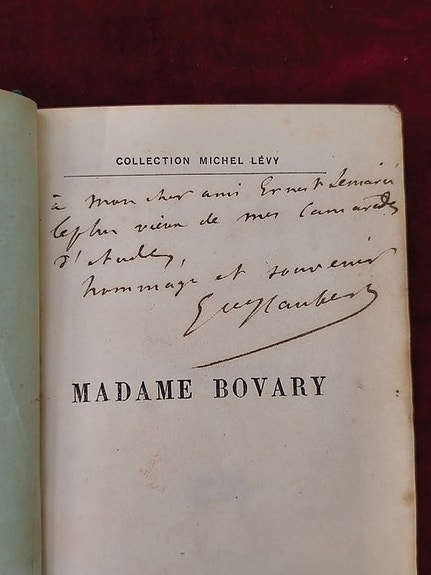 COLLECTION MICHEL LÉVY
à mon cher ami Ernest Lemarié
le plus vieux de mes camarades
d'études,
hommage et souvenir
Gve Flaubert
MADAME BOVARY